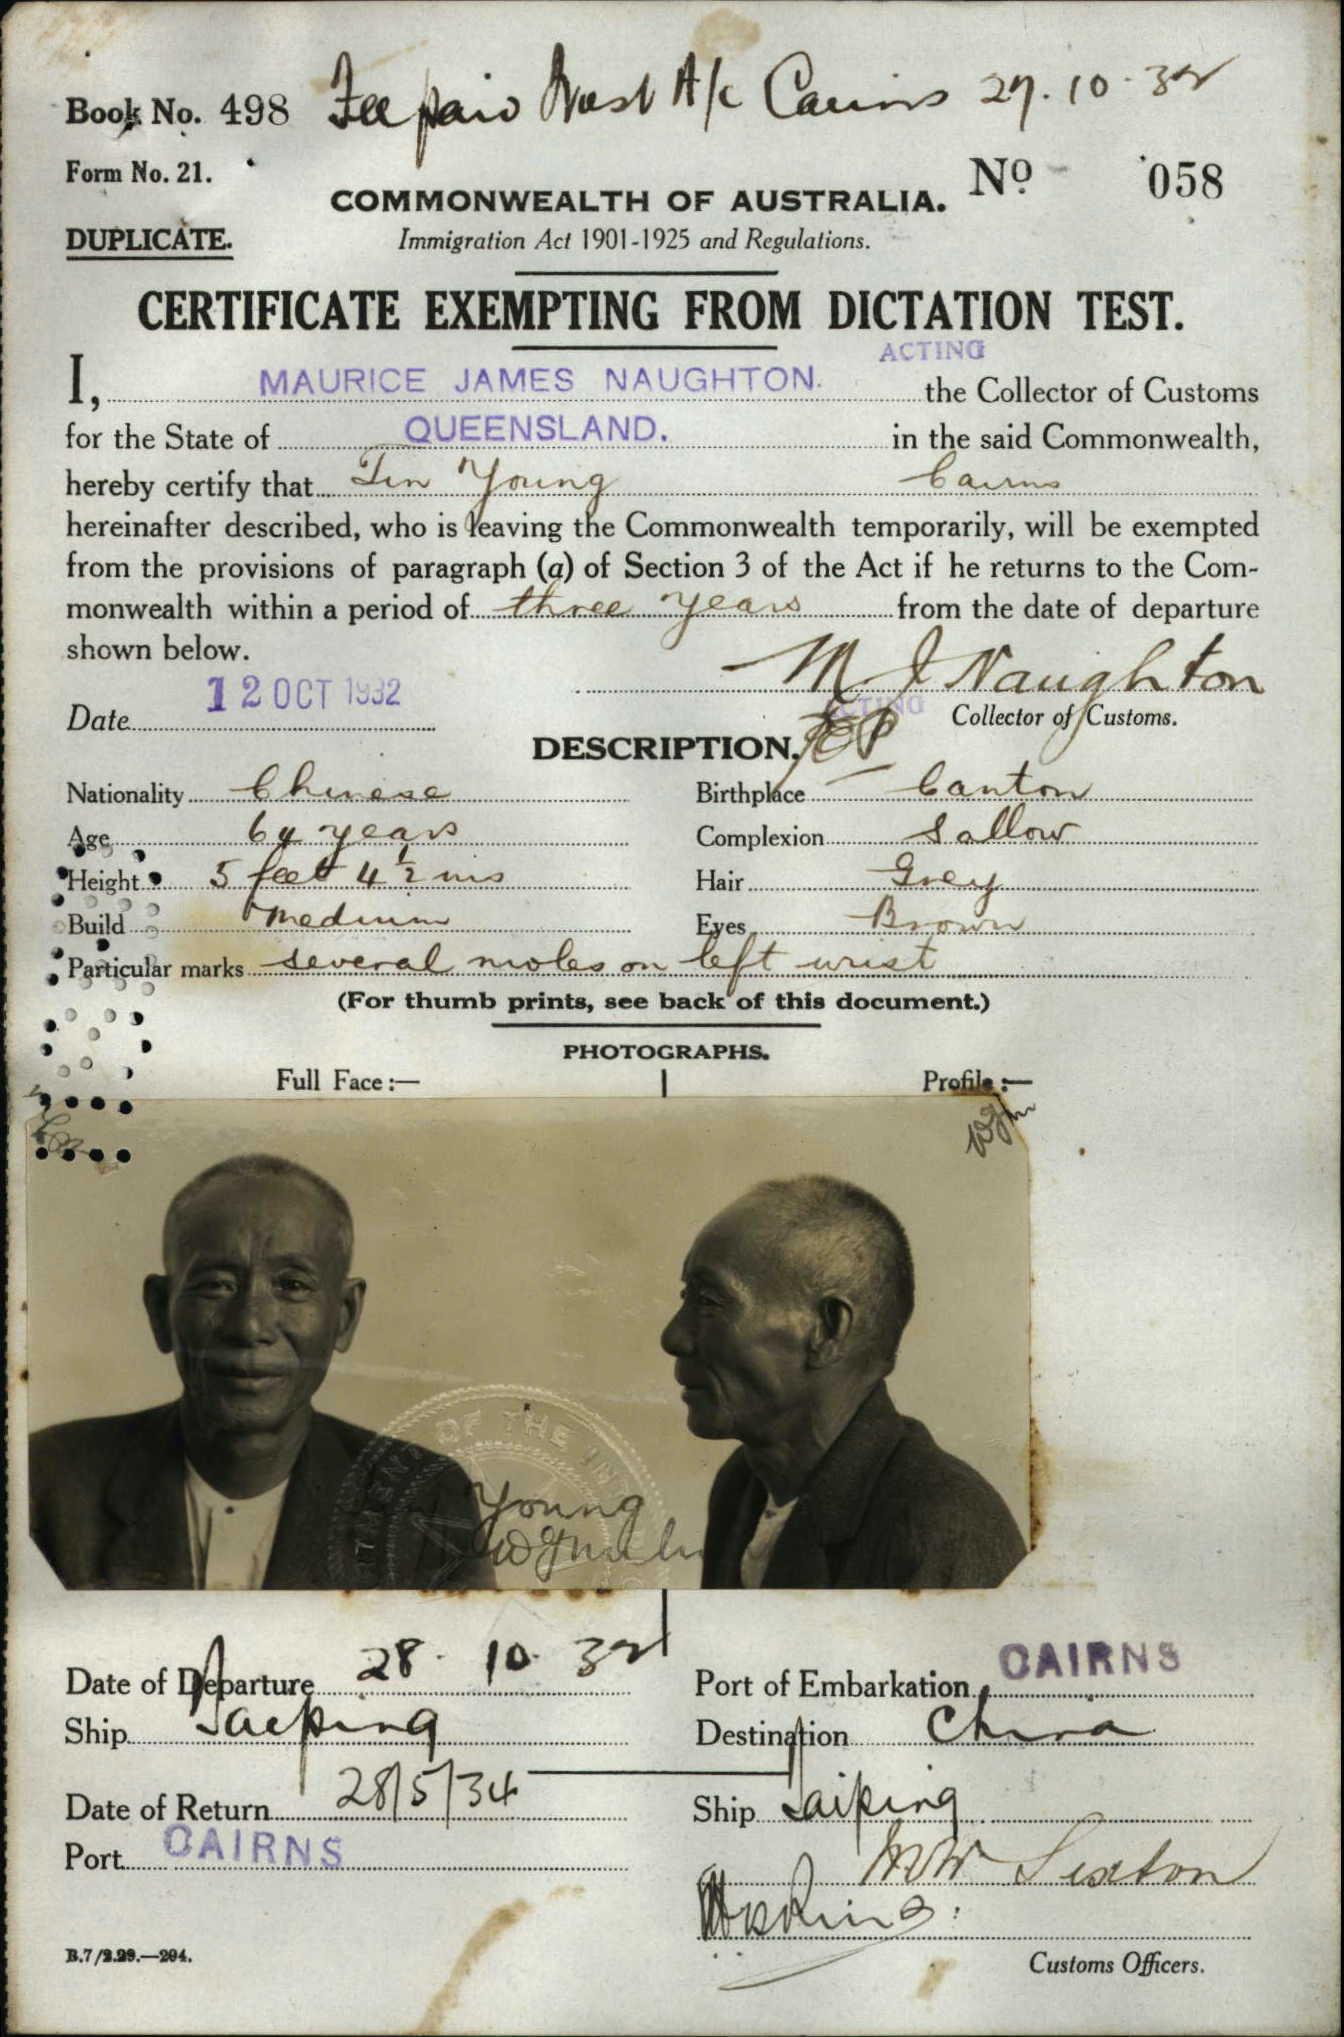 Book No. 498 Fee paid A/c Cairns 27.10.32
Form No. 21.
No 058
COMMONWEALTH OF AUSTRALIA.
DUPLICATE.
Immigration Act 1901-1925 and Regulations.
CERTIFICATE EXEMPTING FROM DICTATION TEST.
ACTING
I, MAURICE JAMES NAUGHTON. the Collector of Customs
for the State of QUEENSLAND. in the said Commonwealth,
hereby certify that Tin Young Cairns
hereinafter described, who is leaving the Commonwealth temporarily, will be exempted
from the provisions of paragraph (a) of Section 3 of the Act if he returns to the Com-
monwealth within a period of three years from the date of departure
shown below.
M J Naughton
Date 12 OCT 1932
ACTING
Collector of Customs.
DESCRIPTION.
Nationality Chinese Birthplace Canton
Age 64 years Complexion Sallow
Height 5 feet 4 1/2 ins Hair Grey
Build Medium Eyes Brown
Particular marks several moles on left wrist
(For thumb prints, see back of this document.)
PHOTOGRAPHS.
Full Face:— Profile:—
OF THE IN
Young
Date of Departure 28.10.32 Port of Embarkation CAIRNS
Ship Taiping Destination China
Date of Return 28/5/34 Ship Taiping
Port CAIRNS
Sexton
Hoskins
B.7/2.29.—294.
Customs Officers.